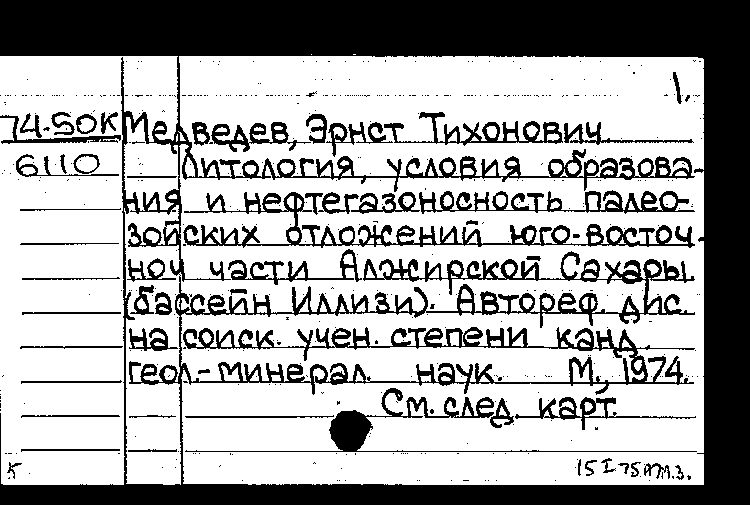 1.
74-50К Медведев, Эрнст Тихонович.
6110 Литология, условия образова-
ния и нефтегазоносность палео-
зойских отложений юго-восточ-
ной части Алжирской Сахары
(бассейн Иллизи). Автореф. дис.
на соиск. учен. степени канд.
геол.-минерал. наук. М., 1974.
См. след. карт.
15 I 75